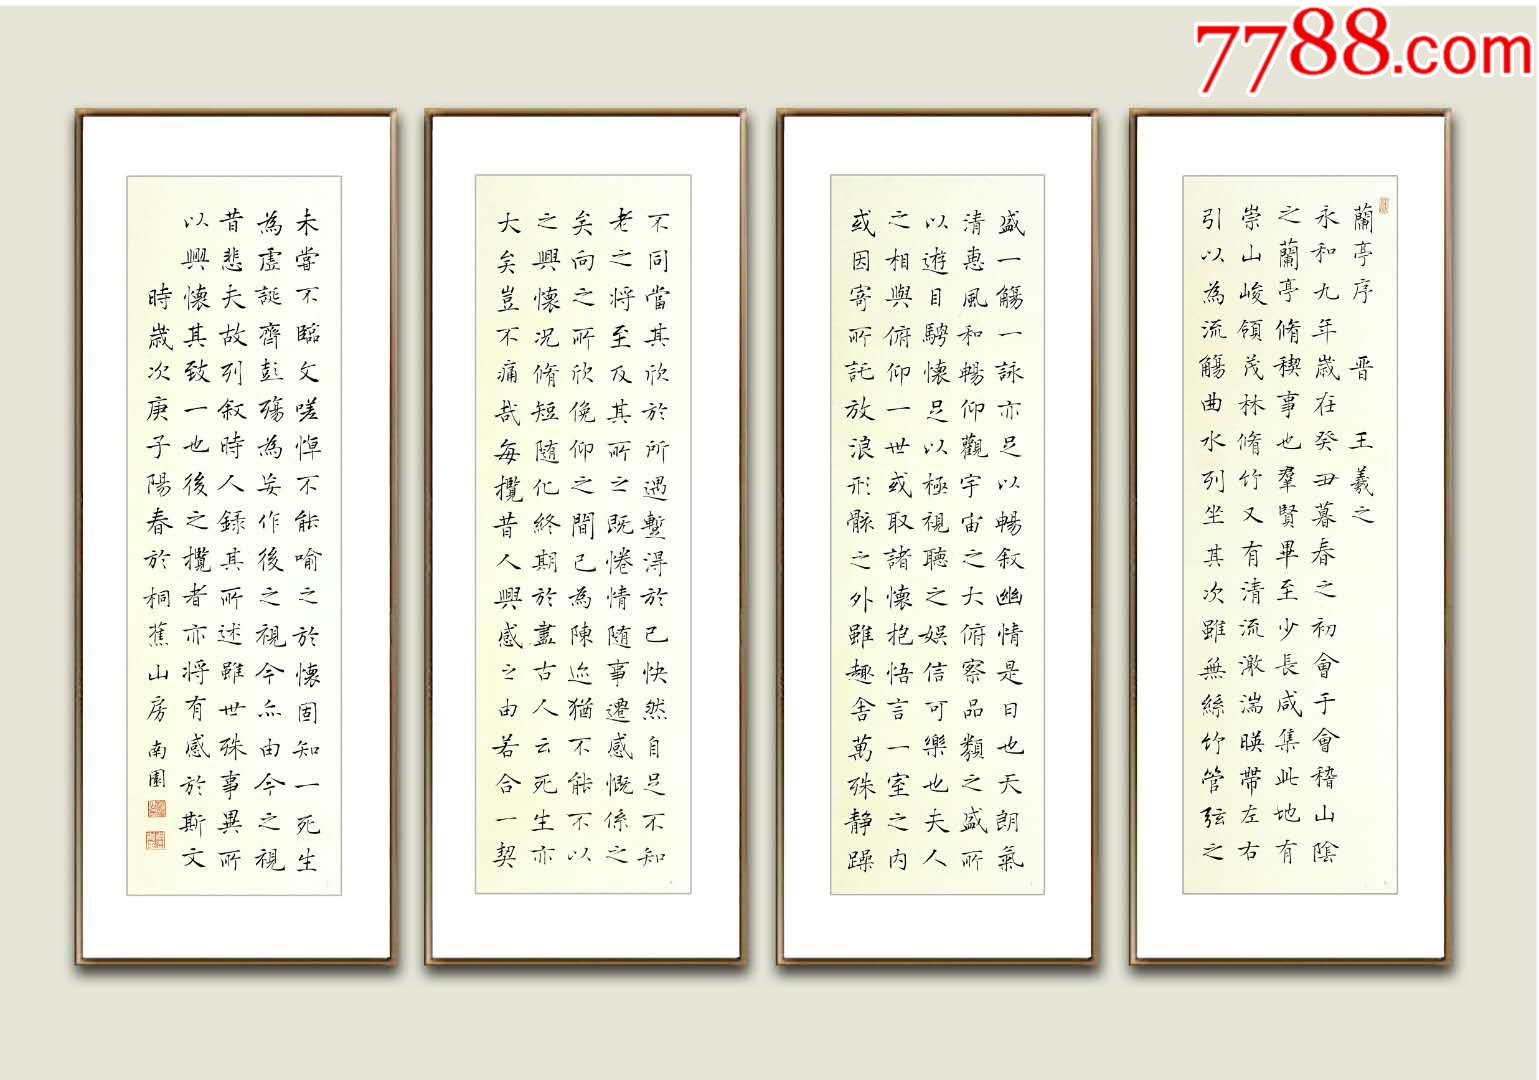 7788.com
蘭亭序 晋 王羲之
永和九年歲在癸丑暮春之初會于會稽山陰
之蘭亭脩稧事也羣賢畢至少長咸集此地有
崇山峻領茂林脩竹又有清流激湍暎帶左右
引以為流觴曲水列坐其次雖無絲竹管弦之
盛一觴一詠亦足以暢叙幽情是日也天朗氣
清惠風和暢仰觀宇宙之大俯察品類之盛所
以遊目騁懷足以極視聽之娱信可樂也夫人
之相與俯仰一世或取諸懷抱悟言一室之内
或因寄所託放浪形骸之外雖趣舍萬殊静躁
不同當其欣於所遇蹔得於己快然自足不知
老之将至及其所之既惓情随事遷感慨係之
矣向之所欣俛仰之間已為陳迹猶不能不以
之興懷况脩短随化終期於盡古人云死生亦
大矣豈不痛哉每攬昔人興感之由若合一契
未嘗不臨文嗟悼不能喻之於懷固知一死生
為虚誕齊彭殤為妄作後之視今亦由今之視
昔悲夫故列叙時人録其所述雖世殊事異所
以興懷其致一也後之攬者亦将有感於斯文
時歲次庚子陽春於桐蕉山房 南園